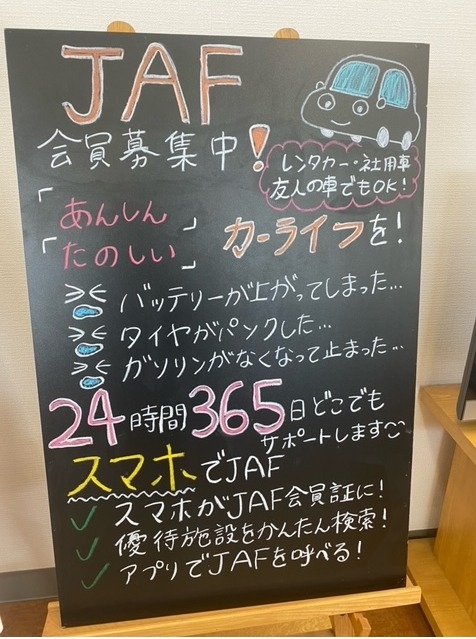 JAF
会員募集中!
レンタカー・社用車
友人の車でもOK!
「あんしん」
「たのしい」
カーライフを!
バッテリーが上がってしまった…
タイヤがパンクした…
ガソリンがなくなって止まった…
24時間365日どこでも
サポートします
スマホでJAF
✓ スマホがJAF会員証に!
✓ 優待施設をかんたん検索!
✓ アプリでJAFを呼べる!